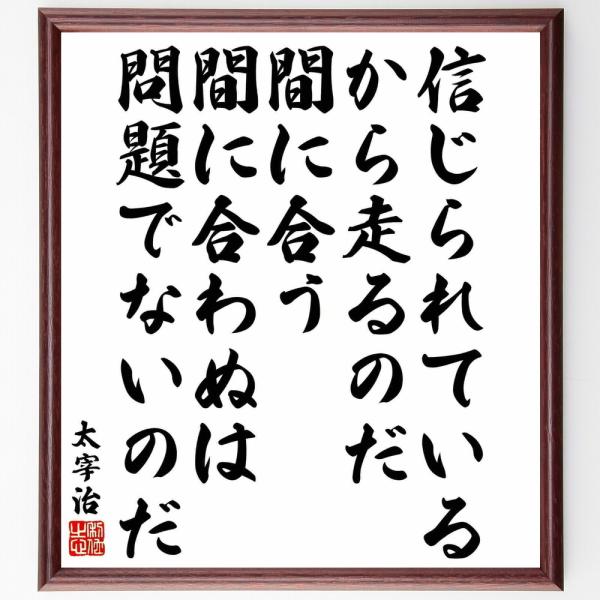 信じられている
から走るのだ
間に合う
間に合わぬは
問題でないのだ
太宰治